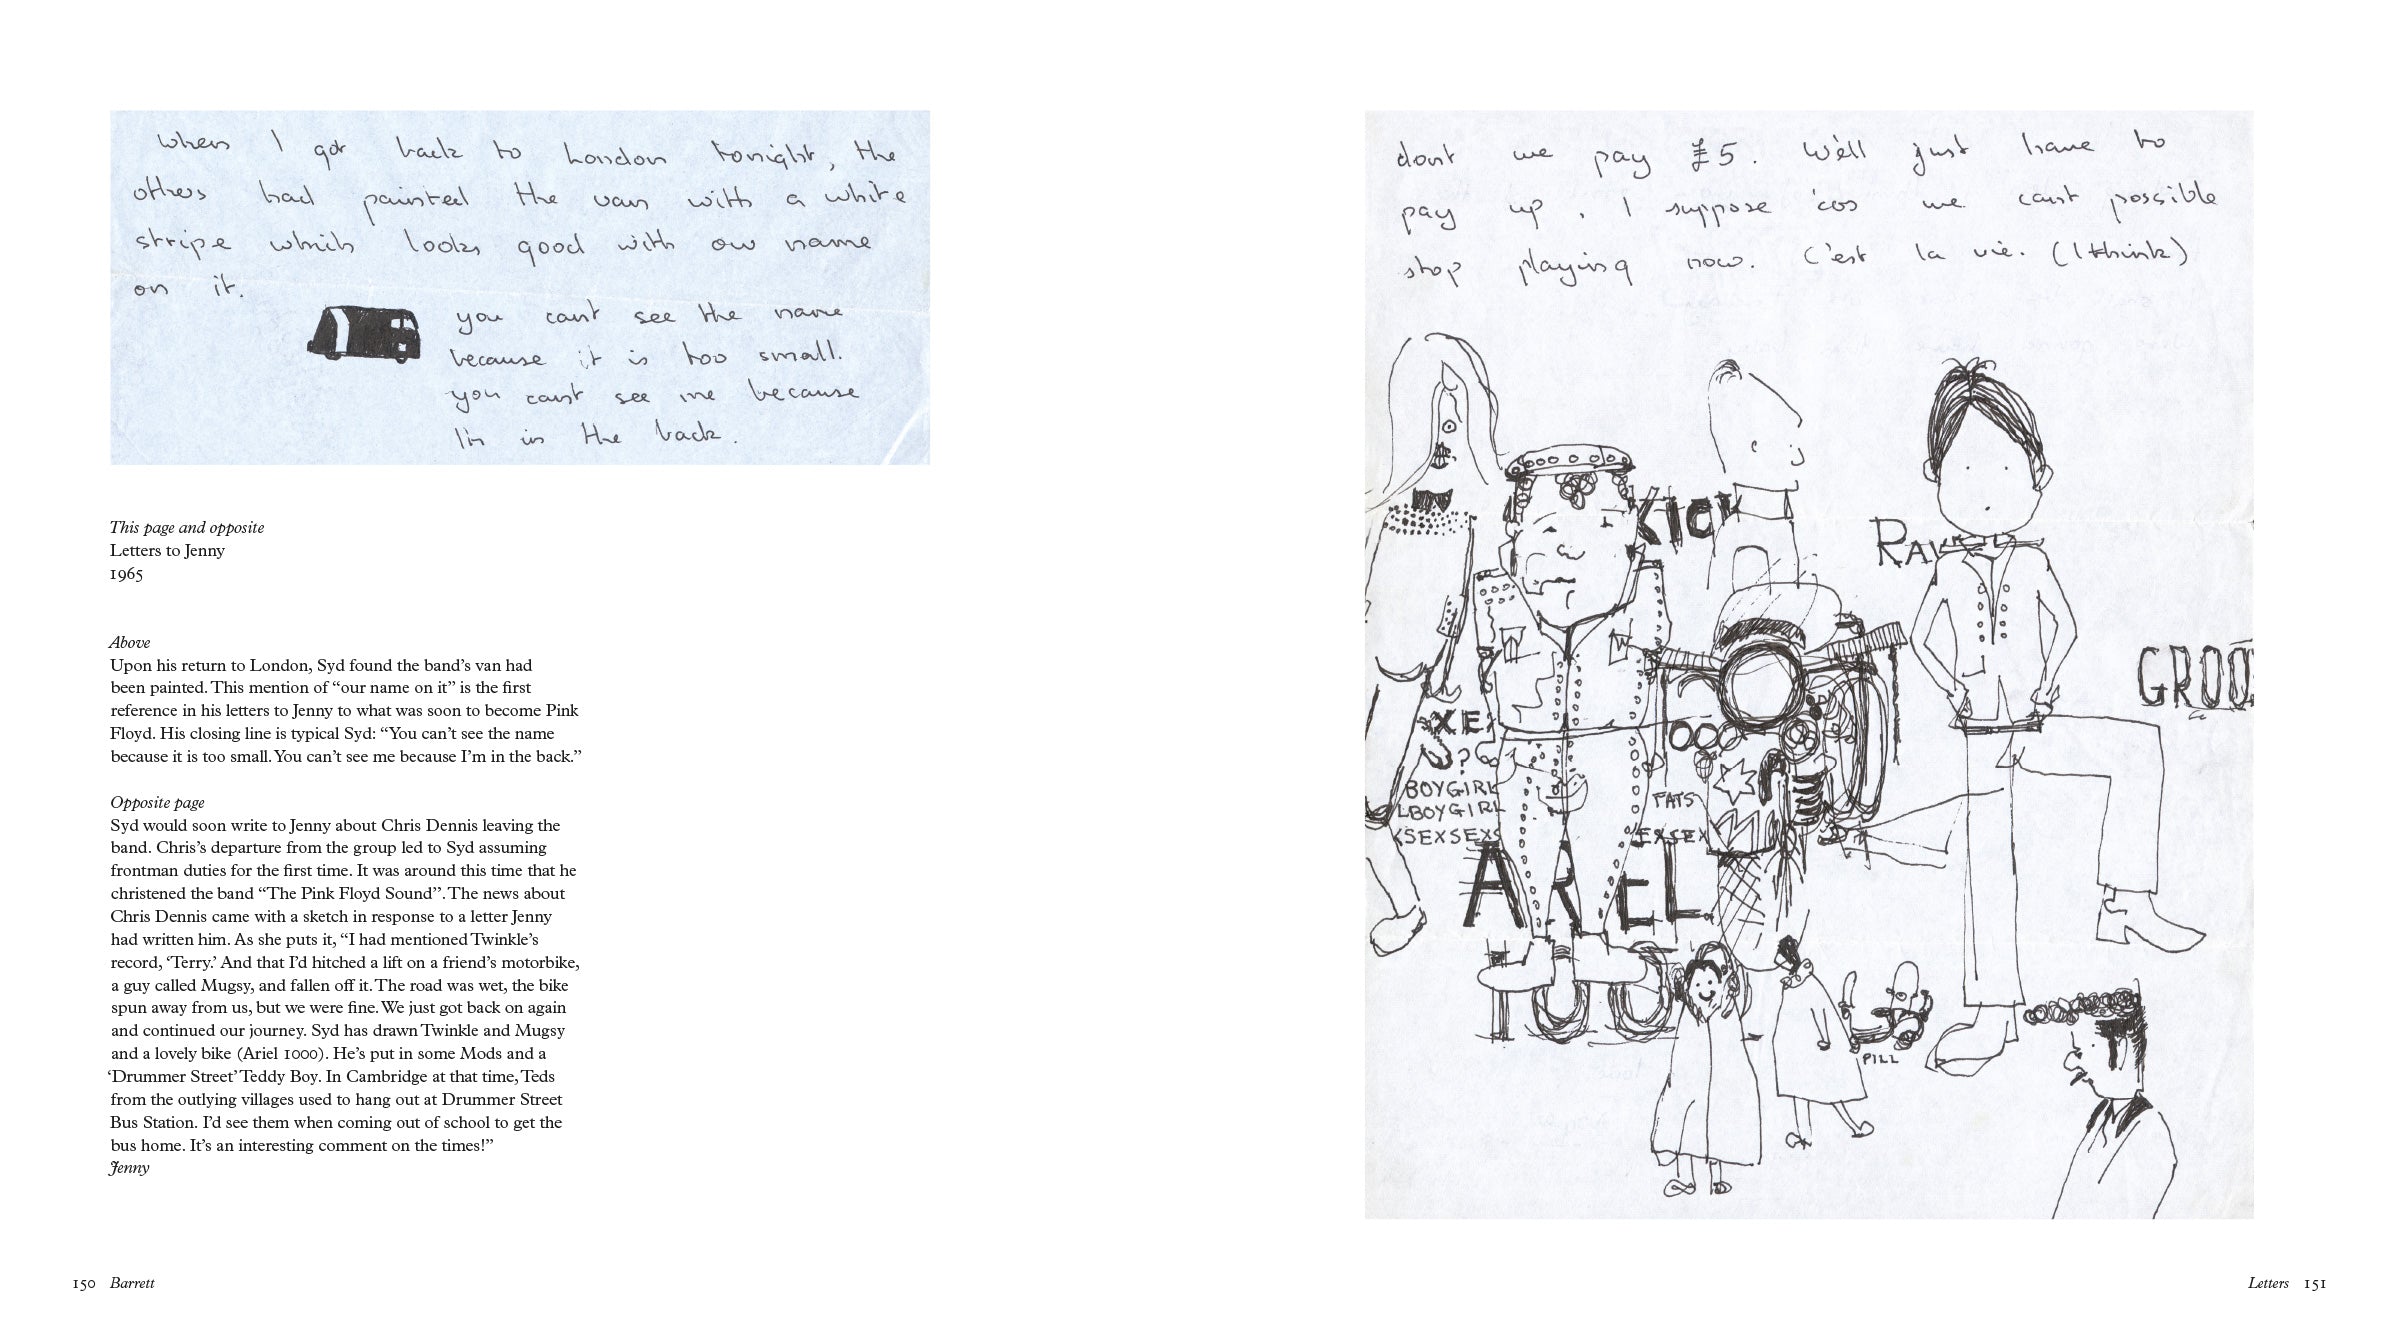 when I got back to London tonight, the
others had painted the van with a white
stripe which looks good with our name
on it.
you cant see the name
because it is too small.
you cant see me because
I'm in the back.
This page and opposite
Letters to Jenny
1965
Above
Upon his return to London, Syd found the band’s van had
been painted. This mention of “our name on it” is the first
reference in his letters to Jenny to what was soon to become Pink
Floyd. His closing line is typical Syd: “You can’t see the name
because it is too small. You can’t see me because I’m in the back.”
Opposite page
Syd would soon write to Jenny about Chris Dennis leaving the
band. Chris’s departure from the group led to Syd assuming
frontman duties for the first time. It was around this time that he
christened the band “The Pink Floyd Sound”. The news about
Chris Dennis came with a sketch in response to a letter Jenny
had written him. As she puts it, “I had mentioned Twinkle’s
record, ‘Terry.’ And that I’d hitched a lift on a friend’s motorbike,
a guy called Mugsy, and fallen off it. The road was wet, the bike
spun away from us, but we were fine. We just got back on again
and continued our journey. Syd has drawn Twinkle and Mugsy
and a lovely bike (Ariel 1000). He’s put in some Mods and a
‘Drummer Street’ Teddy Boy. In Cambridge at that time, Teds
from the outlying villages used to hang out at Drummer Street
Bus Station. I’d see them when coming out of school to get the
bus home. It’s an interesting comment on the times!”
Jenny
150 Barrett
dont we pay £5. We'll just have to
pay up, I suppose 'cos we cant possible
stop playing now. C'est la vie. (I think)
KICK
RAV
GROO
XE
?
BOYGIRL
LBOYGIRL
SEXSEXS
FATS
EXSEX
ARIEL
100
PILL
Letters 151